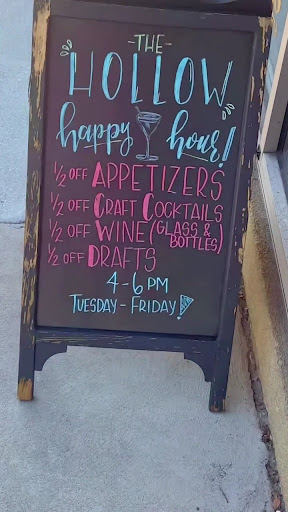 -THE-
HOLLOW
happy hour!
1/2 OFF APPETIZERS
1/2 OFF CRAFT COCKTAILS
1/2 OFF WINE (GLASS & BOTTLES)
1/2 OFF DRAFTS
4-6 PM
TUESDAY-FRIDAY!